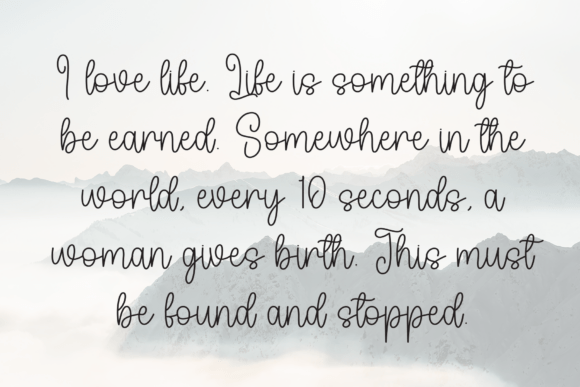 I love life. Life is something to
be earned. Somewhere in the
world, every 10 seconds, a
woman gives birth. This must
be found and stopped.